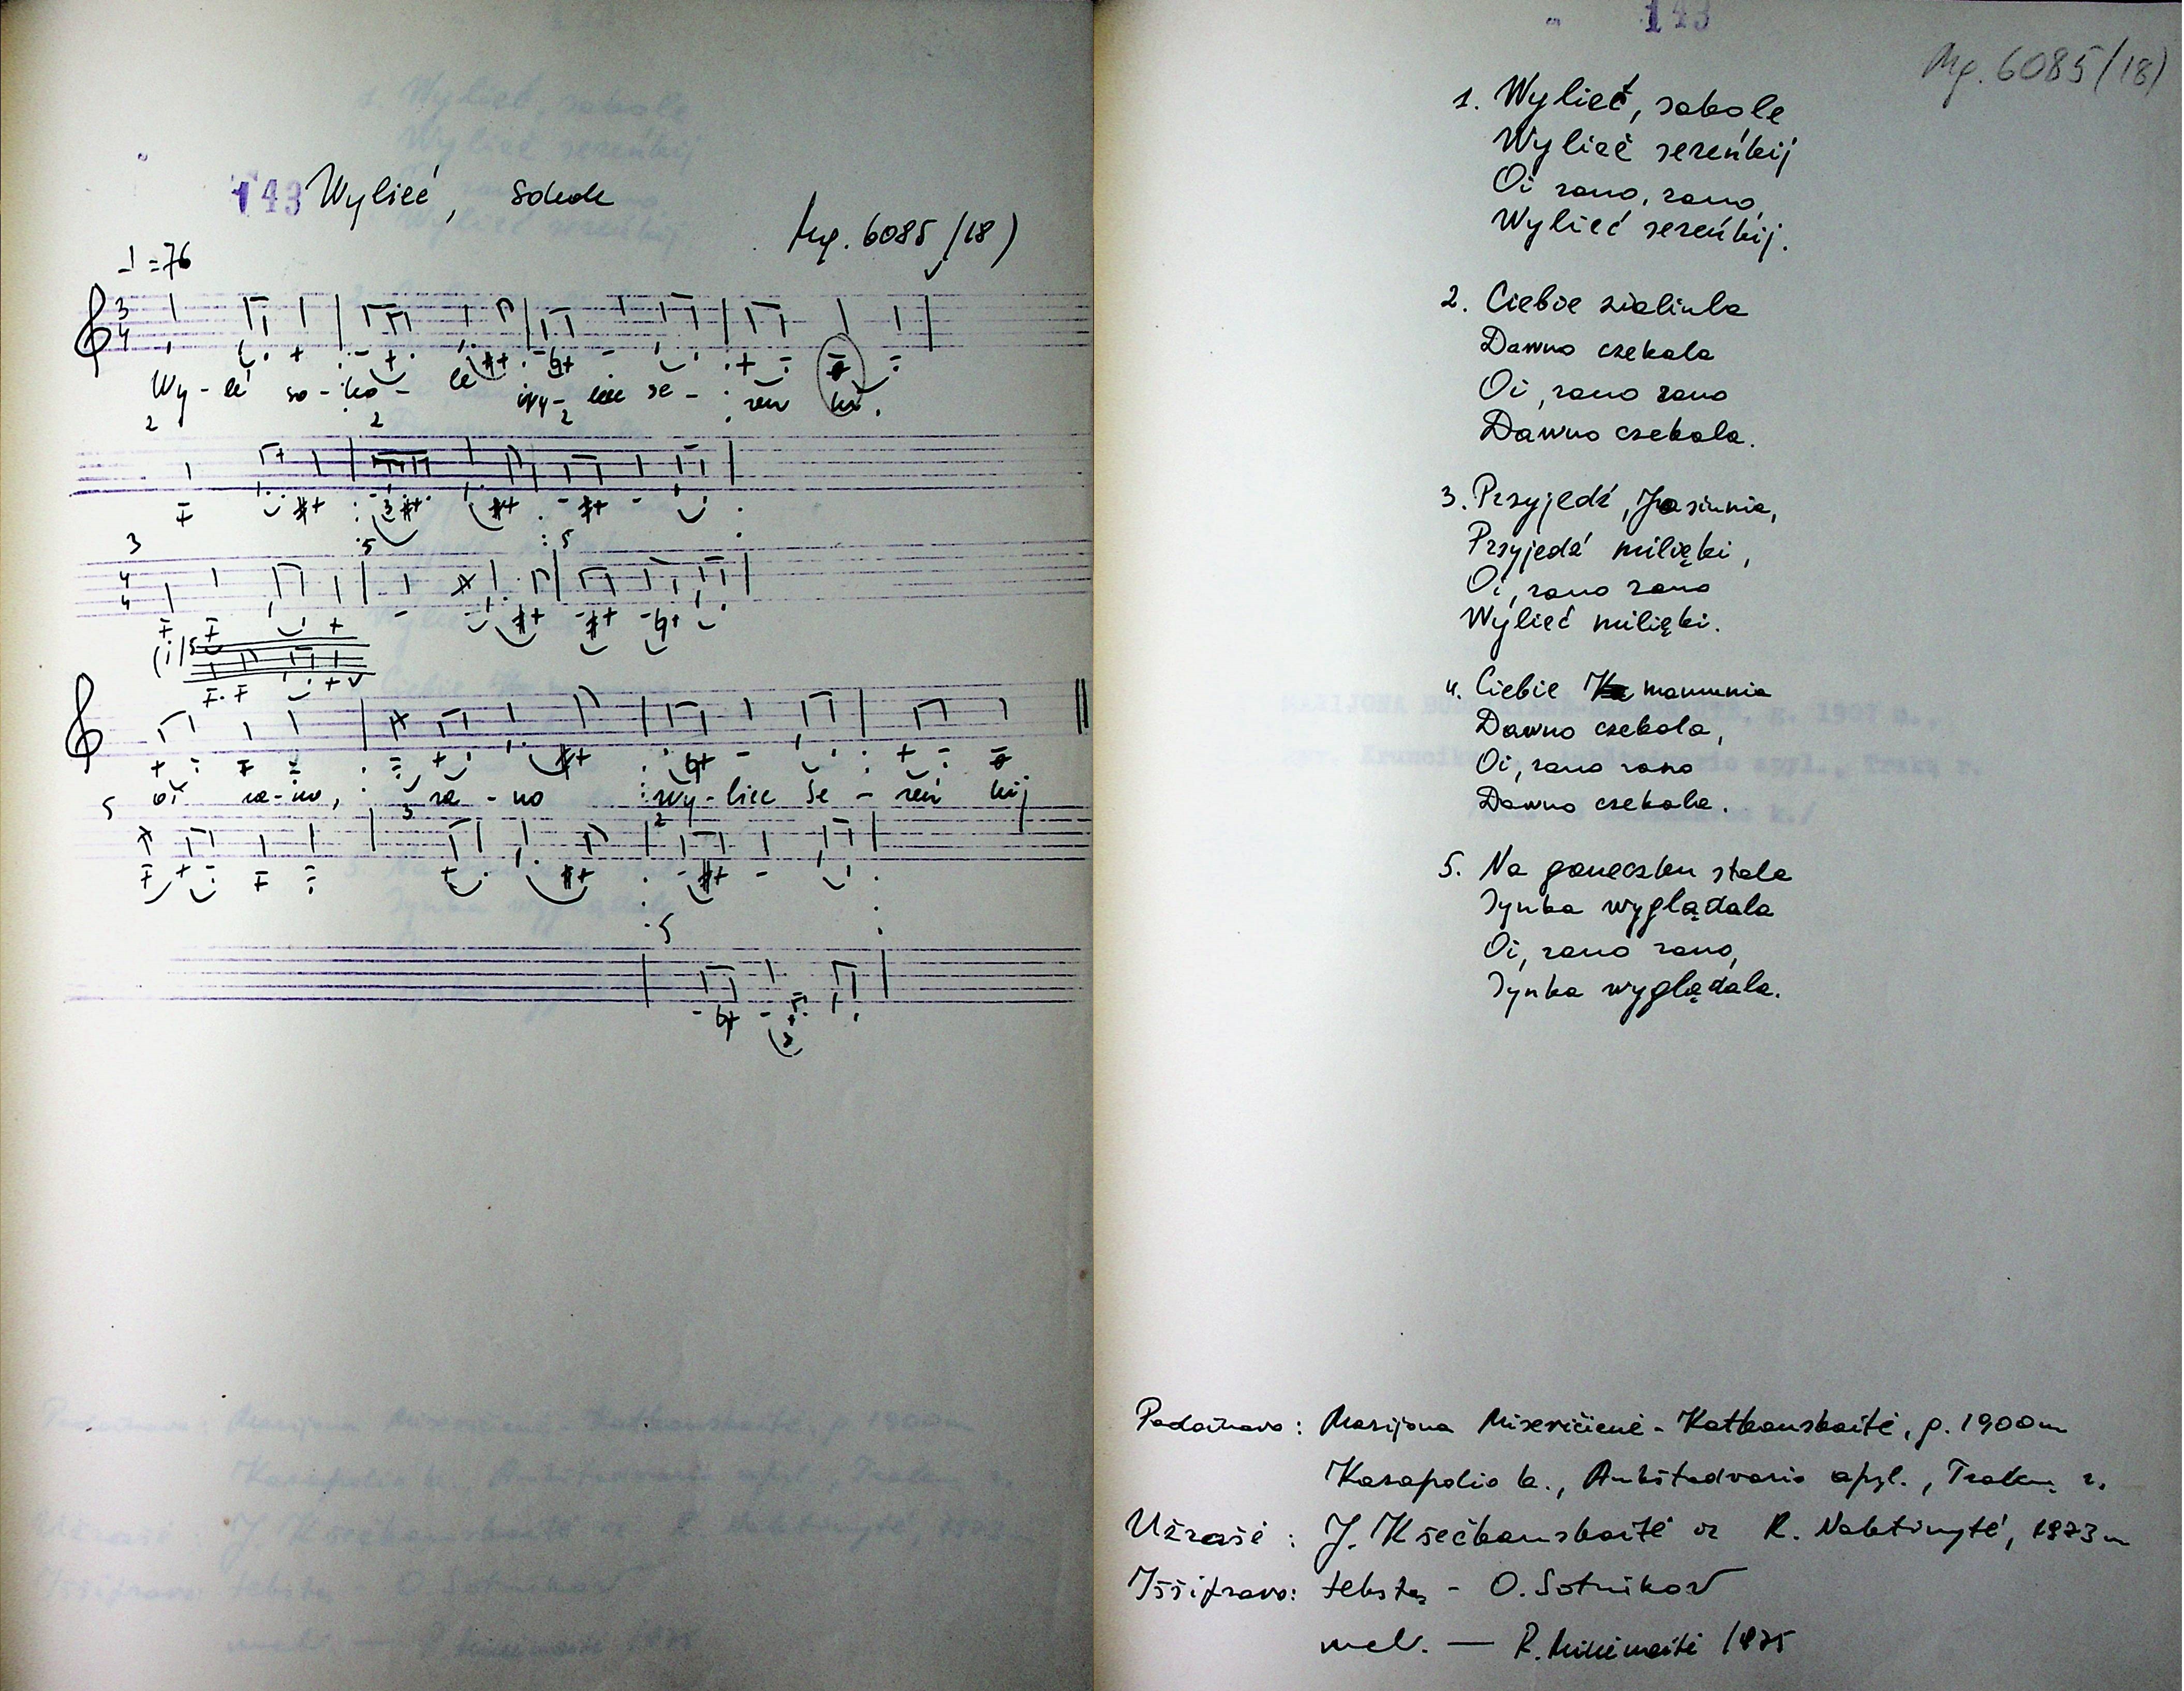 143 Wylieć, Sokole
Mg. 6085/(18)
♩=76
3
4
Wy-leć so-ko-le wy-lieć se-reń ki.
2 2 2
3 5 5
4
4
5
oi ra-no, ra-no wy-liec se-reń kij
5 3 2
5
143
Mg. 6085/(18)
1. Wylieć, sokole
Wylieć sereńkij
Oi rano, rano,
Wylieć sereńkij.
2. Ciebie zialinka
Dawno czekala
Oi, rano rano
Dawno czekala.
3. Przyjedź, Jasiunia,
Przyjedź milięki,
Oi, rano rano
Wylieć milięki.
4. Ciebie mamunia
Dawno czekala,
Oi, rano rano
Dawno czekala.
5. Na goneczku stala
Synka wyglądala
Oi, rano rano,
Synka wyglądala.
Padainavo: Marijona Misevičienė-Katkauskaitė, g. 1900 m
Kasapolio k., Aukštadvario apyl., Trakų r.
Užrašė: J. Kšečkauskaitė ir R. Naktinytė, 1973 m
Iššifravo: tekstą - O. Sotnikov
mel. — R. 1975